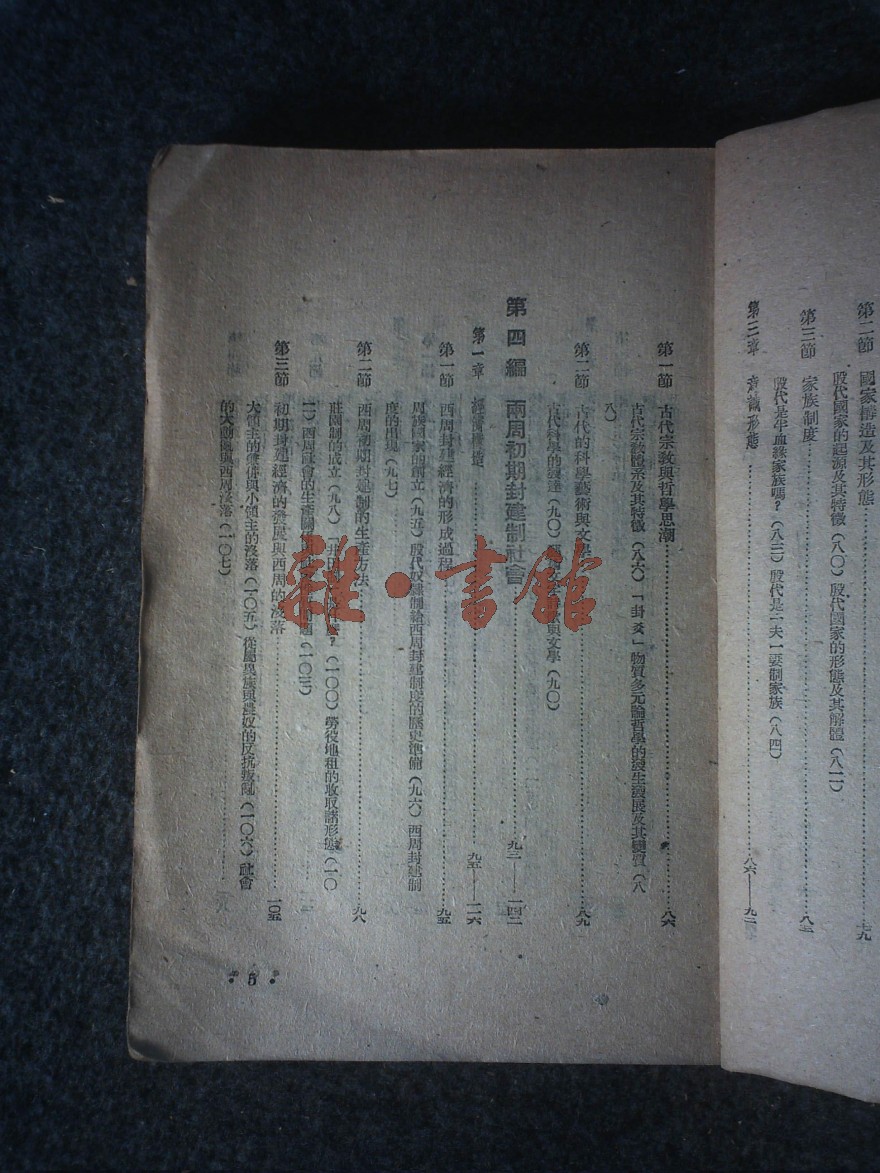 第二節 國家構造及其形態……七九
殷代國家的起源及其特徵（八〇）殷代國家的形態及其解體（八二）
第三節 家族制度……八三
殷代是半血緣家族嗎？（八三）殷代是一夫一妻制家族（八四）
第三章 意識形態……八六——九二
第一節 古代宗教與哲學思潮……八六
古代宗教體系及其特徵（八六）「卦爻」物質多元論哲學的發生發展及其變質（八
八）
第二節 古代的科學藝術與文學……八九
古代科學的發達（九〇）與文學（九〇）
第四編 兩周初期封建制社會……九三——一四二
第一章 經濟構造……九五——一一六
第一節 西周封建經濟的形成過程……九五
周族國家的創立（九五）殷代奴隸制給西周封建制度的歷史準備（九六）西周封建制
度的出現（九七）
第二節 西周初期封建制的生產方法……九八
莊園制的成立（九八）「井田（一〇〇）勞役地租的收取諸形態（一〇
二）西周社會的生產（一〇三）
第三節 初期封建經濟的發展與西周的沒落……一〇五
大領主的兼併與小領主的沒落（一〇五）從屬異族與農奴的反抗叛亂（一〇六）社會
的大動亂與西周沒落（一〇七）
5
雜·書館